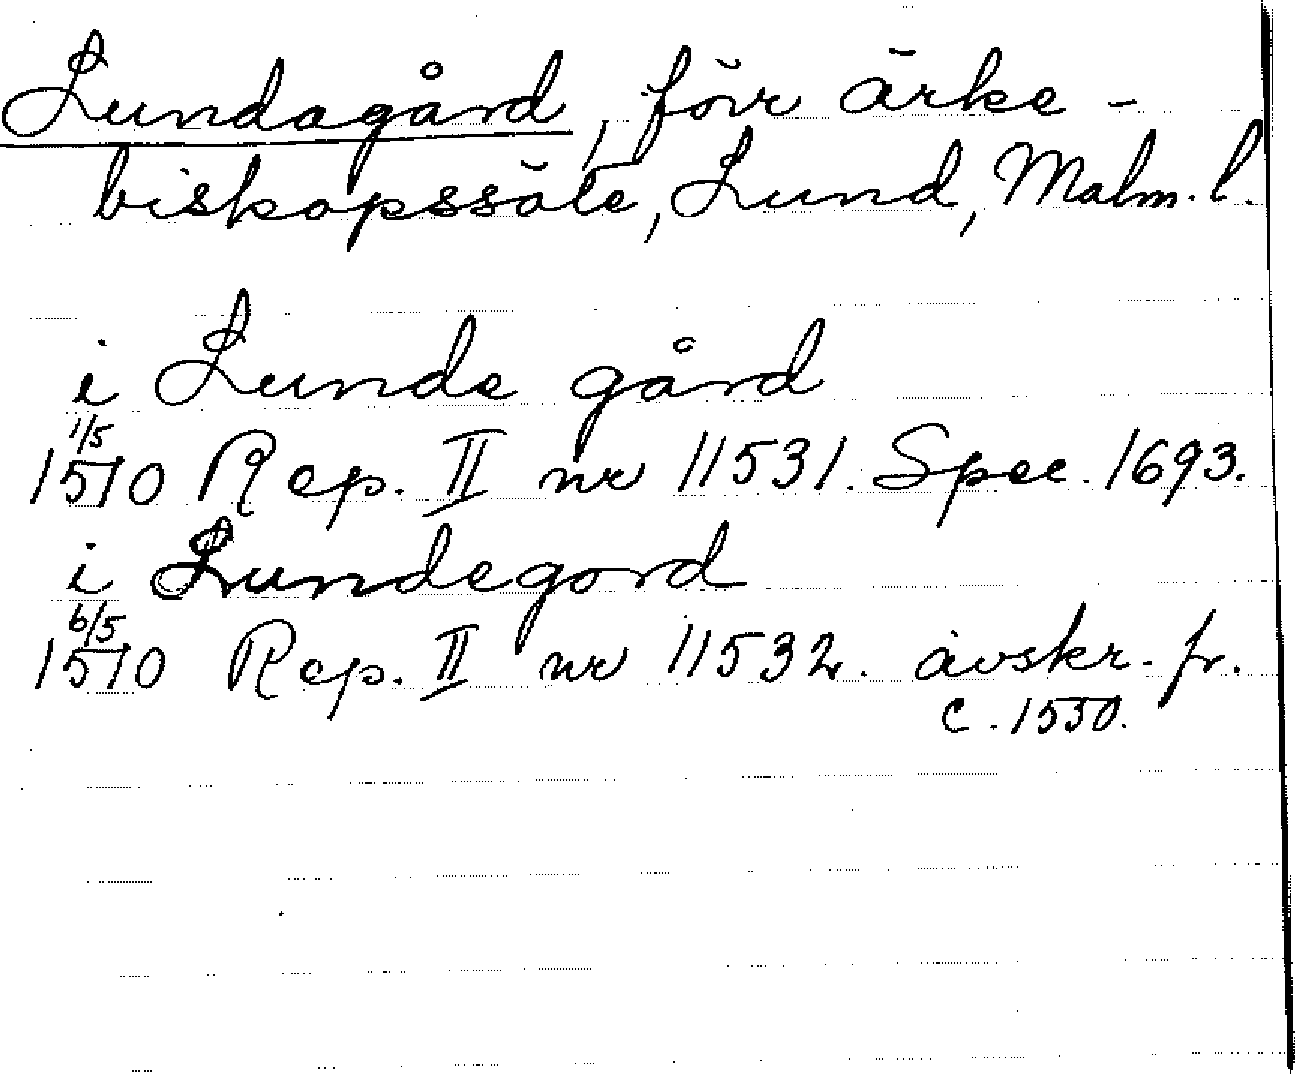 Lundagård, förr ärke-
biskopssäte, Lund, Malm. l.
i Lunde gård
1/5
1510 Rep. II nr 11531. Spec. 1693.
i Lundegord
6/5
1510 Rep. II nr 11532. avskr. fr.
c. 1550.